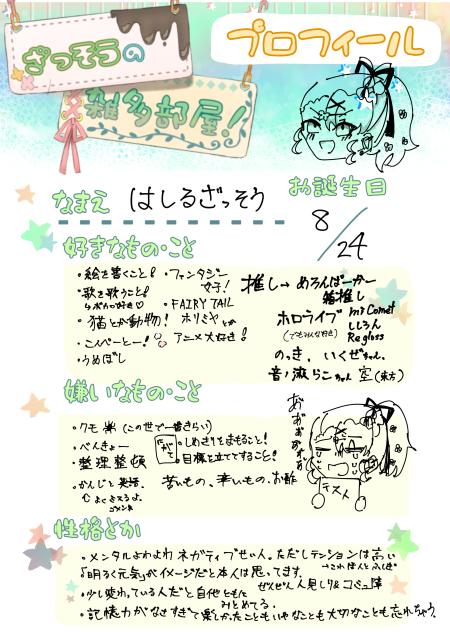 ざっそうの
雑多部屋!
プロフィール
なまえ はしるざっそう
お誕生日
8/24
好きなもの・こと
・絵を書くこと!
・歌を歌うこと!
↳ボカロ好き♡
・猫とか動物!
・こんぺーとー!
・うめぼし
・ファンタジー
女子!
・FAIRY TAIL
ホリミヤ とか
・アニメ大好き!
推し→めろんぱーかー
箱推し
ホロライブ
(でもみんな好き)
mr Comet
ししろん
Regloss
のっき、いくぜちゃん、
音ノ瀬らこちゃん 空(東方)
嫌いなもの・こと
・クモ (この世で一番きらい)
・べんきょー
・整理整頓
・かんじと英語、
にがて
・しめきりをまもること!
・目標を立てすること!
苦いもの、辛いもの、お酢
あぁぉぉぉぉ
テスト
性格とか
・メンタルよわよわ ネガティブせい人。ただしテンションは高い
→これほんとふしぎ
「明るく元気」がイメージだと本人は思ってます。
ぜんぜん人見しり&コミュ障
・少し変わっている人だと自他ともに
みとめてる。
・記憶力がなさすぎて楽しかったこともいやなことも大切なことも忘れちゃう。